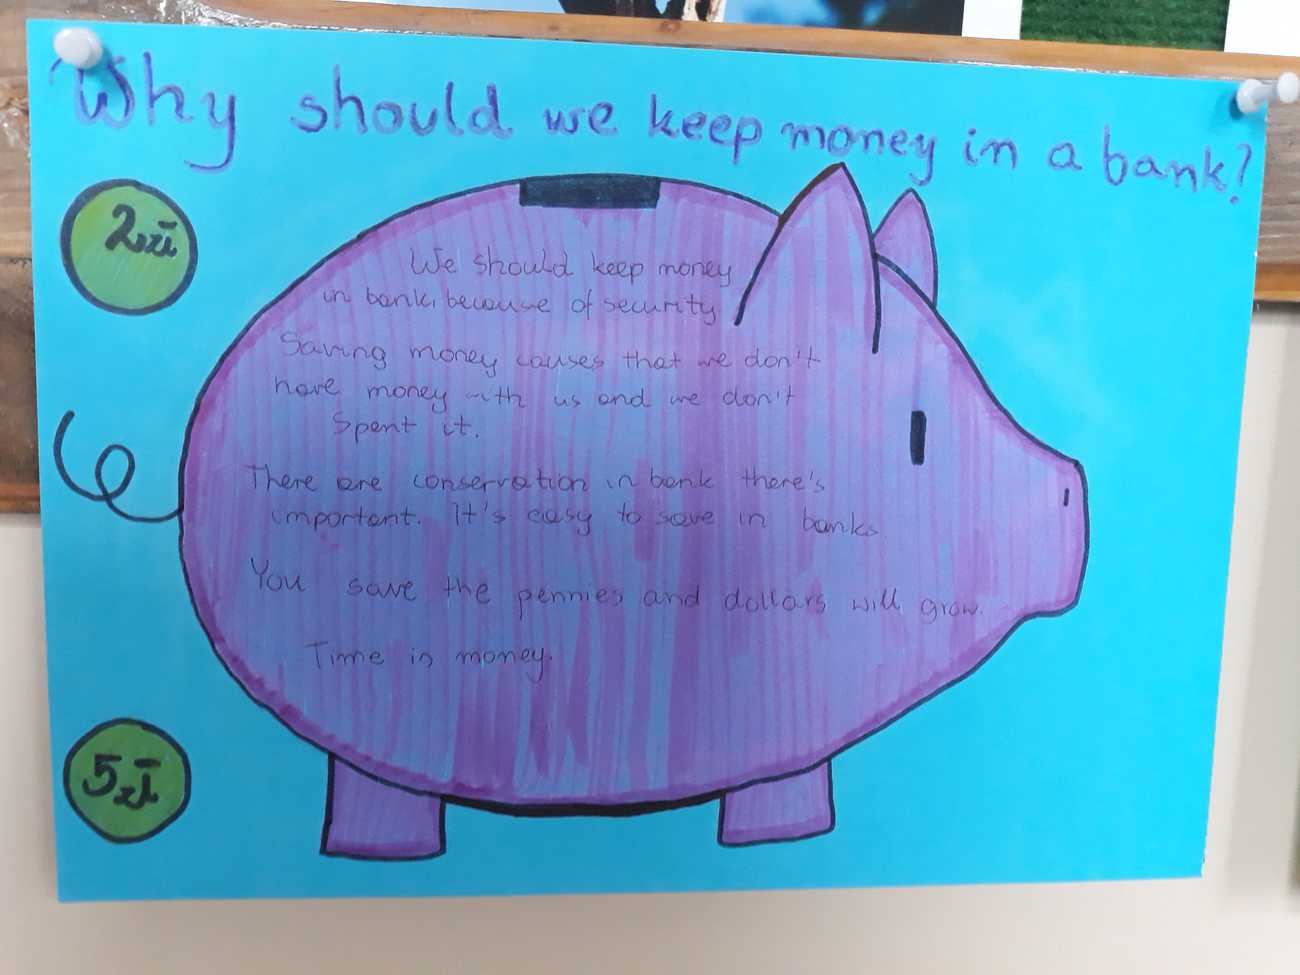 Why should we keep money in a bank?
2zł
We should keep money
in bank, because of security.
Saving money causes that we don't
have money with us and we don't
spent it.
There are conservation in bank there's
important. It's easy to save in banks.
You save the pennies and dollars will grow.
Time is money.
5zł